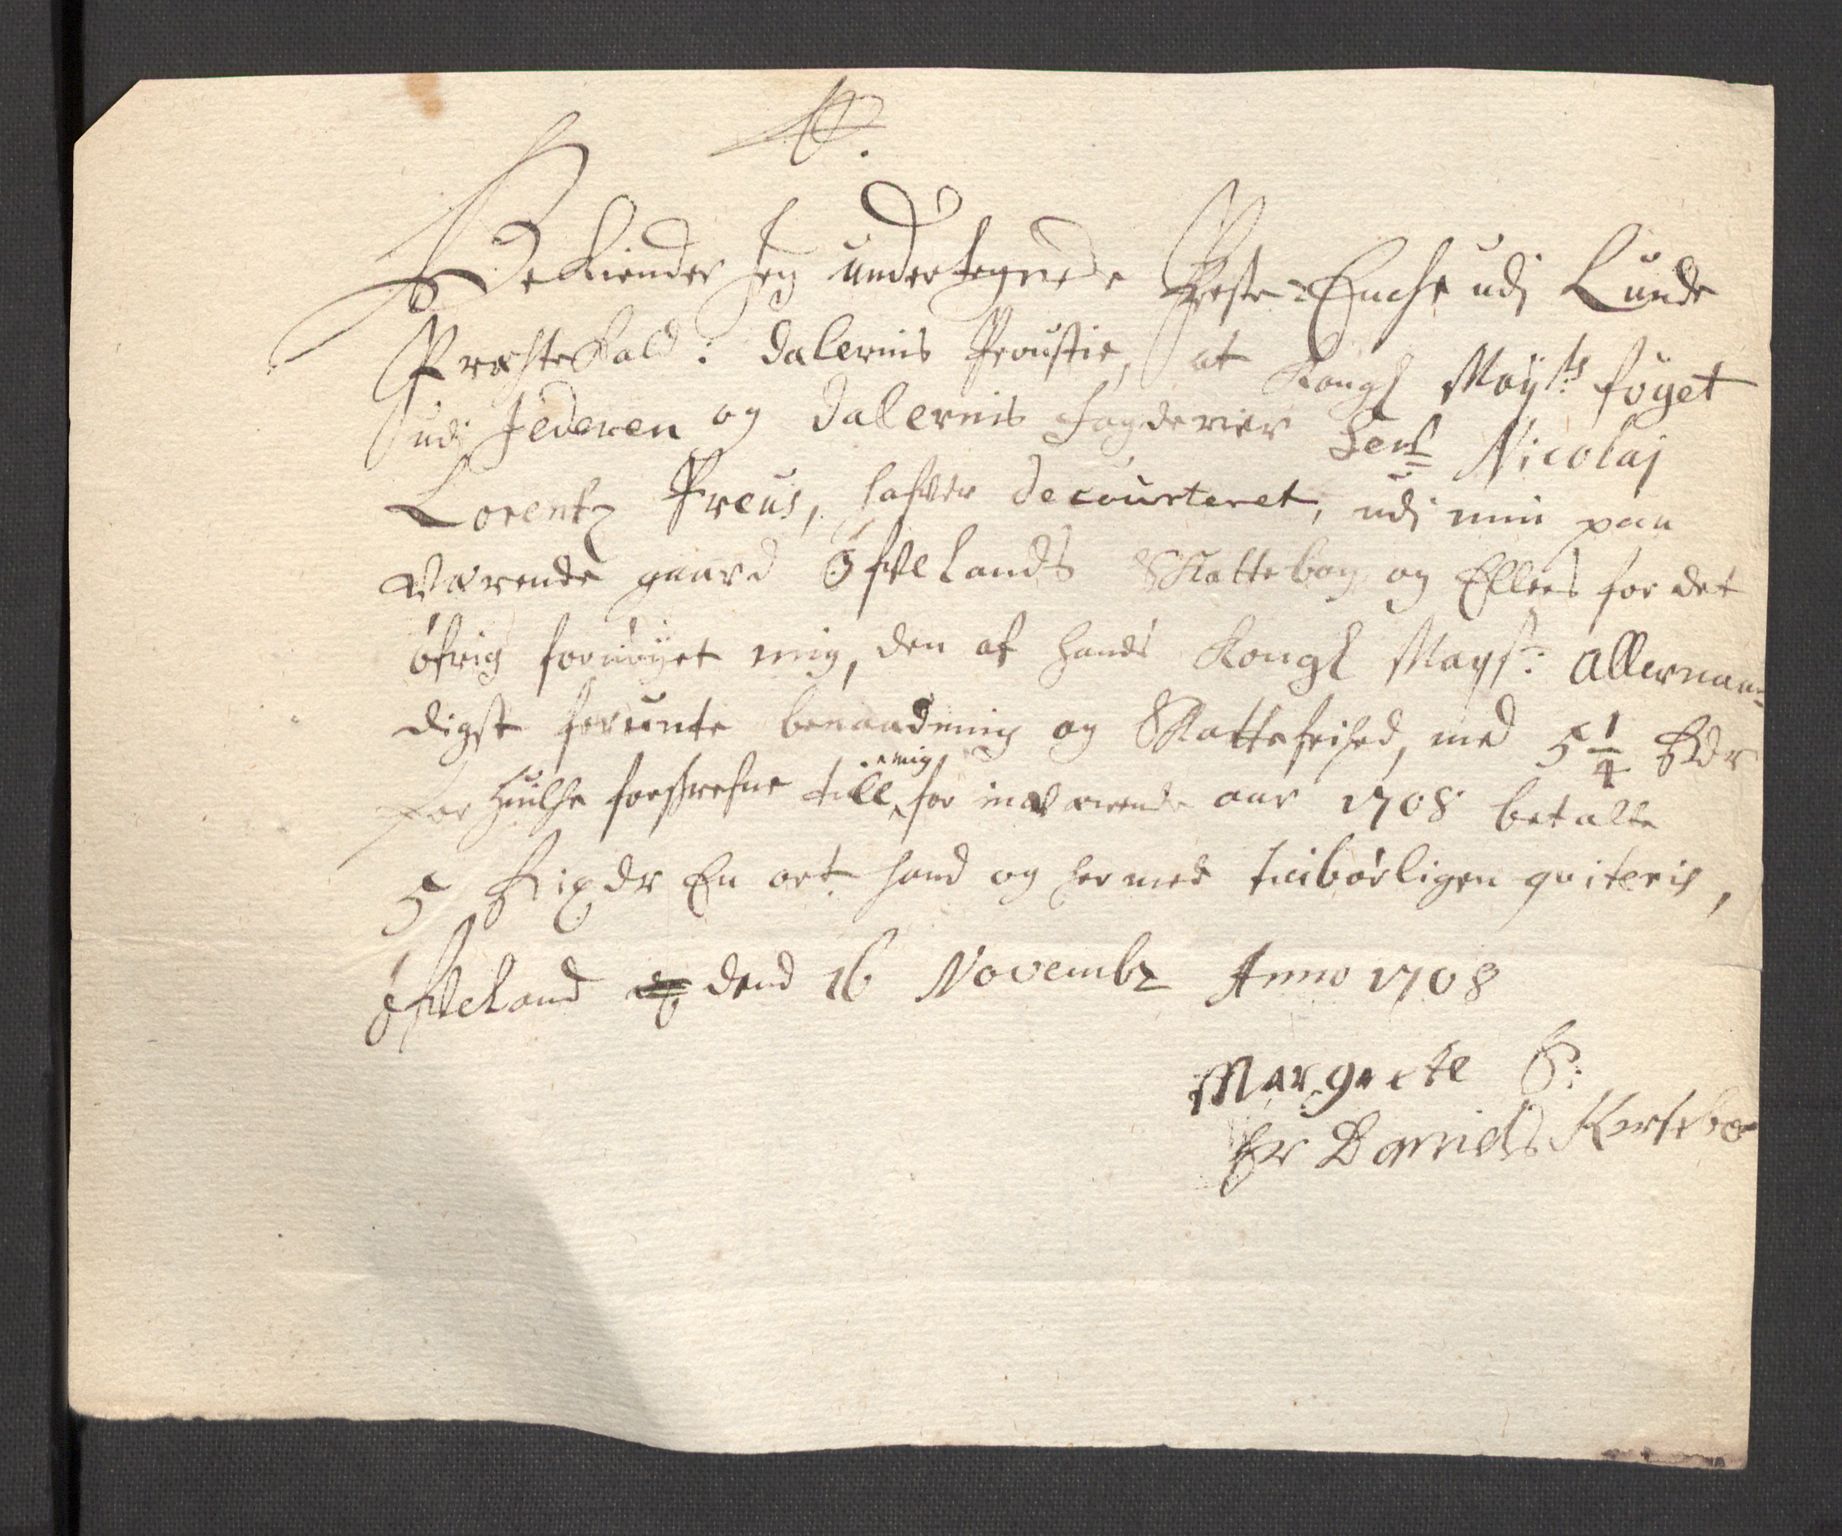 Bekiender Jeg undertegnede Preste-Enche udj Lunde
Præstekald: Dalernis Proustie, at Kongl Mayts foget
udj Jederen og Dalernis fogderier Senr Nicolaj
Lorentz Preus, hafver decourteret, udj min paa
værende gaard Øfvelands Skattebog og Ellers for det
øfrig fornøyet mig, den af hands Kongl Mayst: Allernaa-
digst forunte benaadning og Skattefrihed, med 5 1/4 Rdr
for huilche forskrefne till mig for inværende aar 1708 betalte
5 Rixdr En ort hand og hermed tilbørligen qviteris,
Øfveland dend 16 Novembr Anno 1708
Margrete S:
Hr Davids